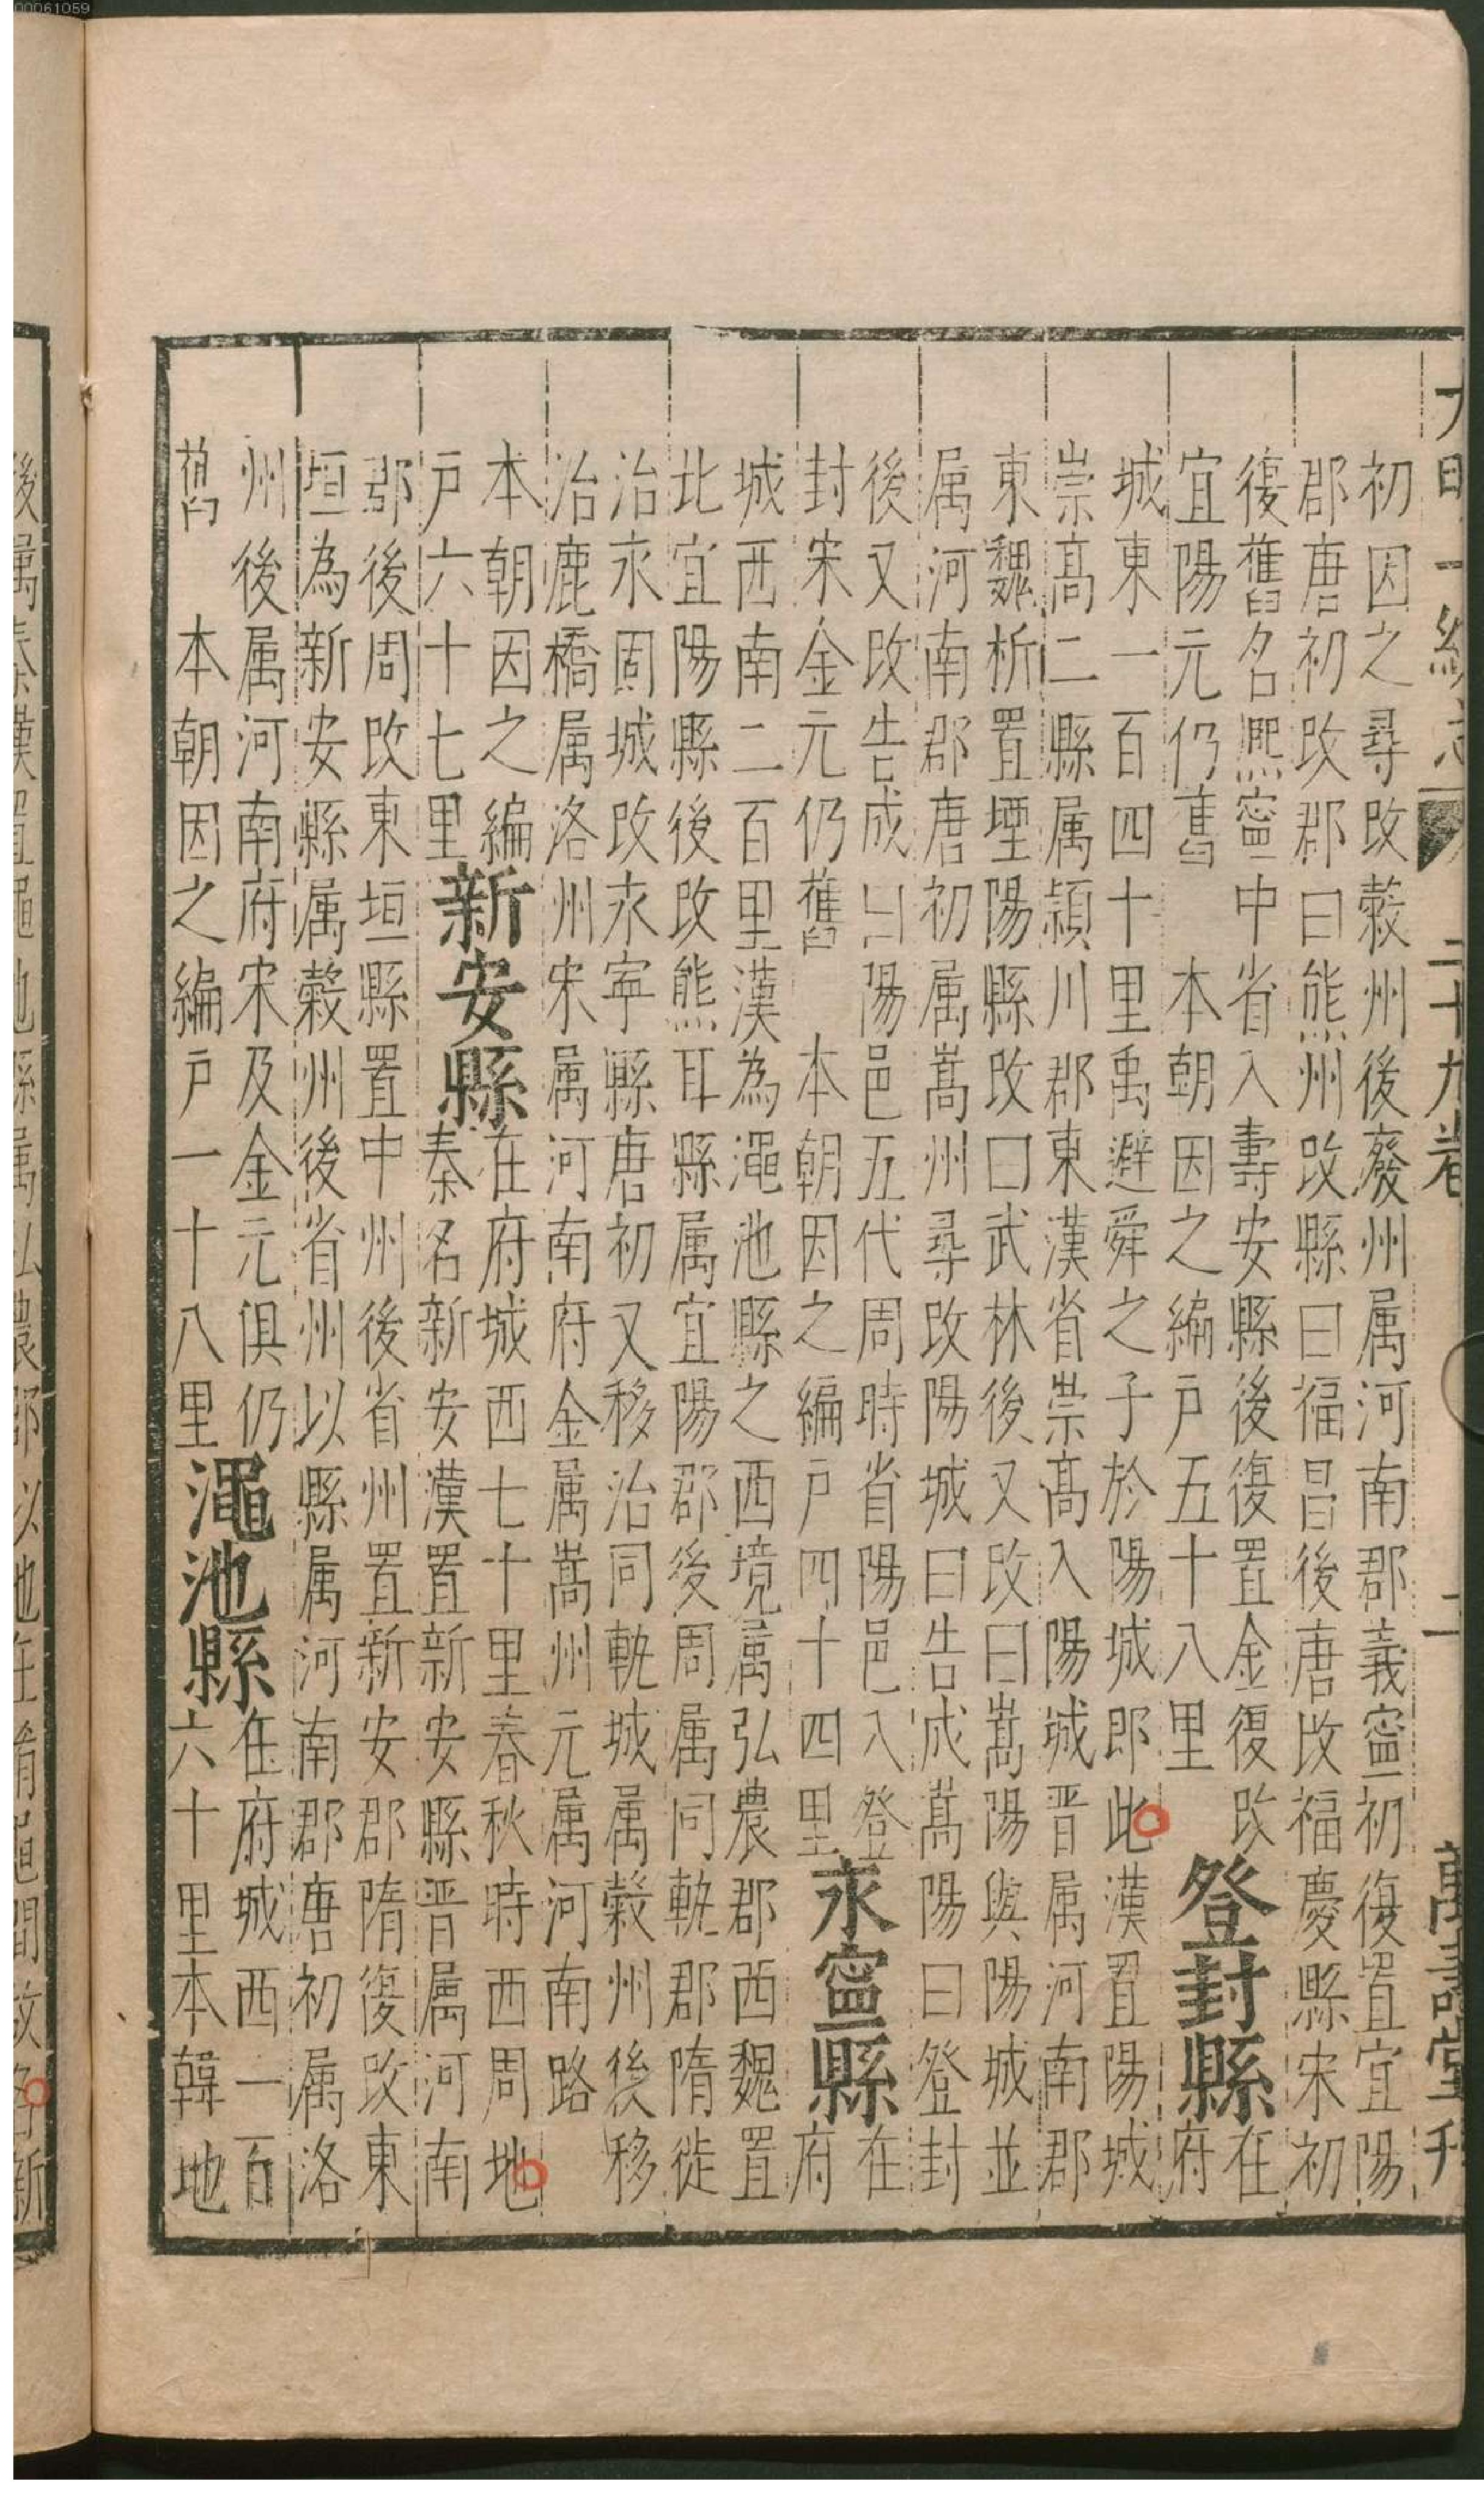 大明一統志 二十九卷 二 萬壽堂刊
初因之尋改穀州後廢州属河南郡義寧初復置宜陽
郡唐初改郡曰熊州改縣曰福昌後唐改福慶縣宋初
復舊名熈寧中省入壽安縣後復置金復改
宜陽元仍舊 本朝因之編戶五十八里
登封縣
在
府
城東一百四十里禹避舜之子於陽城即此漢置陽城
崇高二縣属潁川郡東漢省崇高入陽城晋属河南郡
東魏析置堙陽縣改曰武林後又改曰嵩陽與陽城並
属河南郡唐初属嵩州尋改陽城曰告成嵩陽曰登封
後又改告成曰陽邑五代周時省陽邑入登
封宋金元仍舊 本朝因之編戶四十四里
永寧縣
在
府
城西南二百里漢為澠池縣之西境属弘農郡西魏置
北宜陽縣後改熊耳縣属宜陽郡後周属同軌郡隋徙
治永固城改永寧縣唐初又移治同軌城属穀州後移
治鹿橋属洛州宋属河南府金属嵩州元属河南路
本朝因之編
戶六十七里
新安縣
在府城西七十里春秋時西周地
秦名新安漢置新安縣晋属河南
郡後周改東垣縣置中州後省州置新安郡隋復改東
垣為新安縣属穀州後省州以縣属河南郡唐初属洛
州後属河南府宋及金元俱仍
舊 本朝因之編戶一十八里
澠池縣
在府城西一百
六十里本韓地
後属秦漢置澠池縣属弘農郡以池在崤澠間故名新
00061059